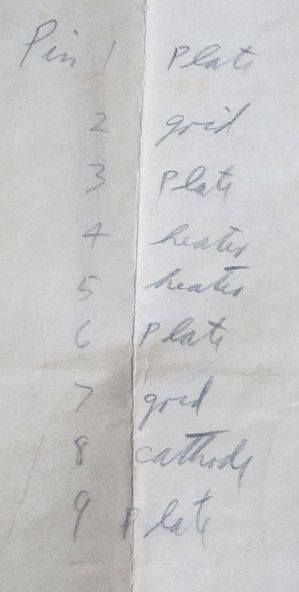 Pin 1 Plate
2 grid
3 Plate
4 heater
5 heater
6 Plate
7 grid
8 cathode
9 Plate